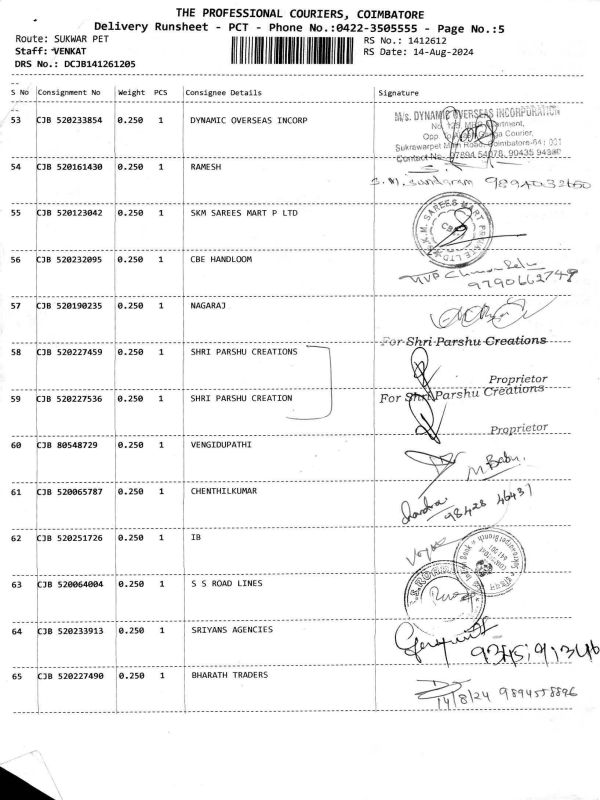 THE PROFESSIONAL COURIERS, COIMBATORE
Delivery Runsheet - PCT - Phone No.:0422-3505555 - Page No.:5
Route: SUKWAR PET RS No.: 1412612
Staff: VENKAT RS Date: 14-Aug-2024
DRS No.: DCJB141261205
--
S No Consignment No Weight PCS Consignee Details Signature
--
53 CJB 520233854 0.250 1 DYNAMIC OVERSEAS INCORP
M/s. DYNAMIC OVERSEAS INCORPORATION
Courier,
Sukrawarpet Main Road, Coimbatore-641 001
Contact No.
54 CJB 520161430 0.250 1 RAMESH
S.M. Sundaram
55 CJB 520123042 0.250 1 SKM SAREES MART P LTD
S.K.M. SAREES MART PRIVATE LTD
56 CJB 520232095 0.250 1 CBE HANDLOOM
9790662749
57 CJB 520190235 0.250 1 NAGARAJ
58 CJB 520227459 0.250 1 SHRI PARSHU CREATIONS
For Shri Parshu Creations
Proprietor
59 CJB 520227536 0.250 1 SHRI PARSHU CREATION
For Shri Parshu Creations
Proprietor
60 CJB 80548729 0.250 1 VENGIDUPATHI
M. Babu.
61 CJB 520065787 0.250 1 CHENTHILKUMAR
98428 46431
62 CJB 520251726 0.250 1 IB
63 CJB 520064004 0.250 1 S S ROAD LINES
64 CJB 520233913 0.250 1 SRIYANS AGENCIES
65 CJB 520227490 0.250 1 BHARATH TRADERS
14/8/24 9894558896